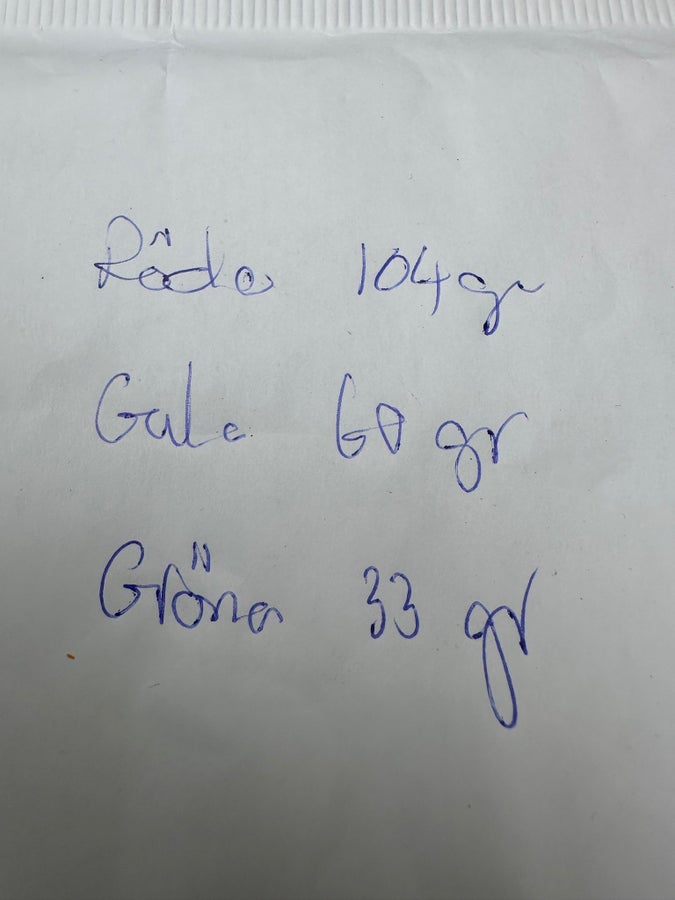 Röda 104 gr
Gula 60 gr
Gröna 33 gr